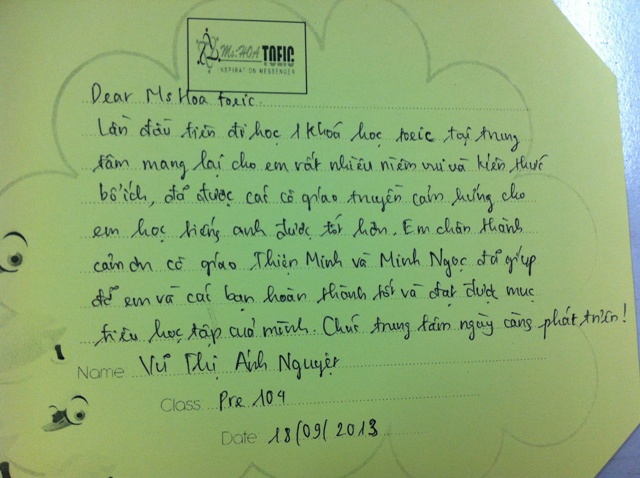 Ms: HOA TOEIC
INSPIRATION MESSENGER
Dear Ms Hoa toeic.
Lần đầu tiên đi học 1 khoá học toeic tại trung
tâm mang lại cho em rất nhiều niềm vui và kiến thức
bổ ích, đã được các cô giáo truyền cảm hứng cho
em học tiếng anh được tốt hơn. Em chân thành
cảm ơn cô giáo Thiện Minh và Minh Ngọc đã giúp
đỡ em và các bạn hoàn thành tốt và đạt được mục
tiêu học tập của mình. Chúc trung tâm ngày càng phát triển!
Name: Vũ Thị Ánh Nguyệt
Class: Pre 104
Date: 18/09/2013